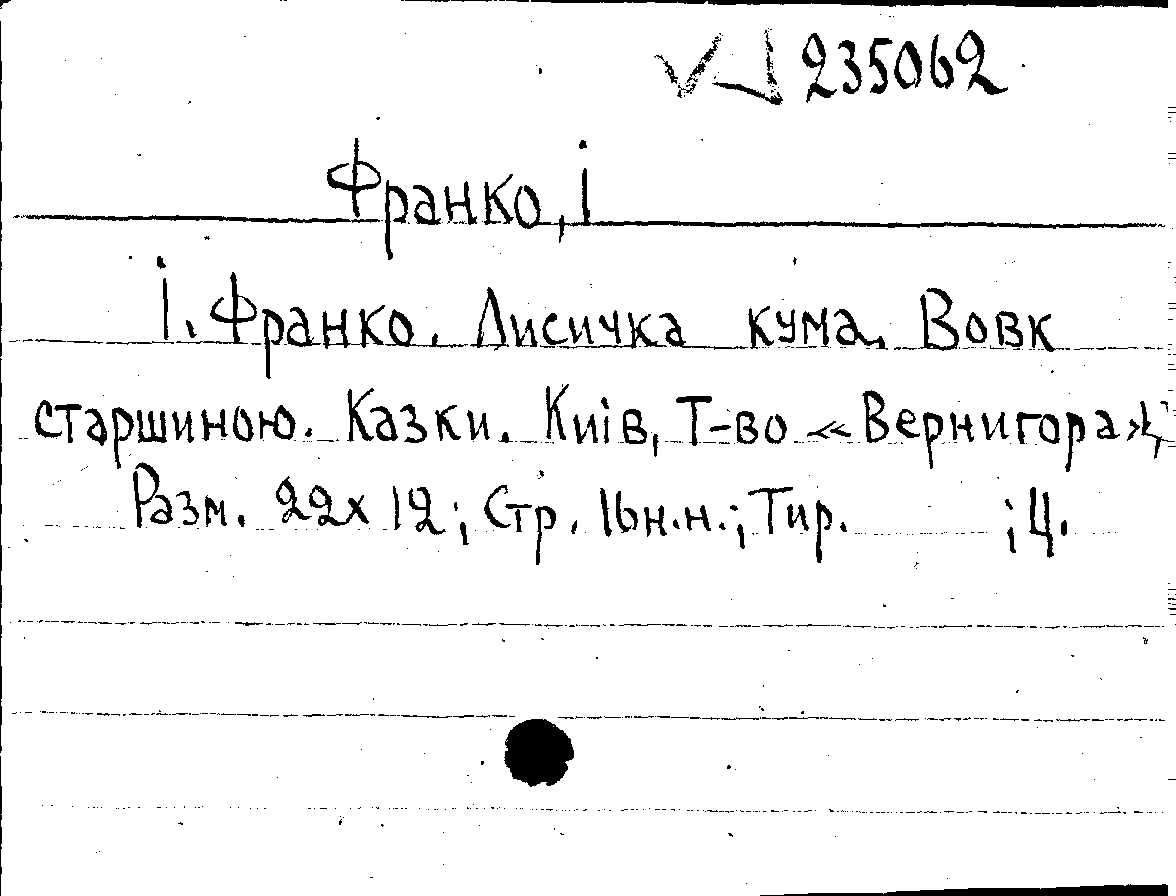 235062
Франко, І
І. Франко. Лисичка кума. Вовк
старшиною. Казки. Киів, Т-во «Вернигора»,
Разм. 22х12; Стр. 16н.н.; Тир. ; Ц.